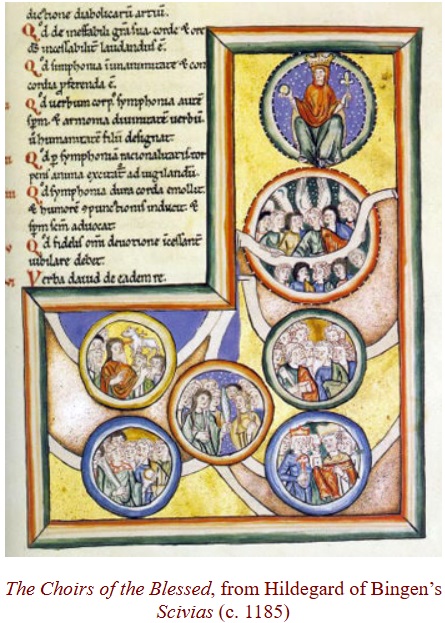 diabolicarū artiū.
Qd de ineffabili gr̄a sua corde & ore
ds incessabilit̄ laudandus ē.
Qd simphonia in unanimitate & con
cordia p̄ferenda ē.
Qd verbum corp̄ symphonia autē
spm̄. & armonia divinitatē verbū
ū humanitatē filii designat.
Qd p̄ symphoniā racionalitatis tor
pens anima excitat̄ ad vigilandū.
Qd symphonia dura corda emollit.
& humorē cpunctionis inducit &
spm̄ scm̄ advocat.
Qd fidelis omi devotione incessant̄
iubilare debet.
Verba david de eadem re.
The Choirs of the Blessed, from Hildegard of Bingen’s
Scivias (c. 1185)